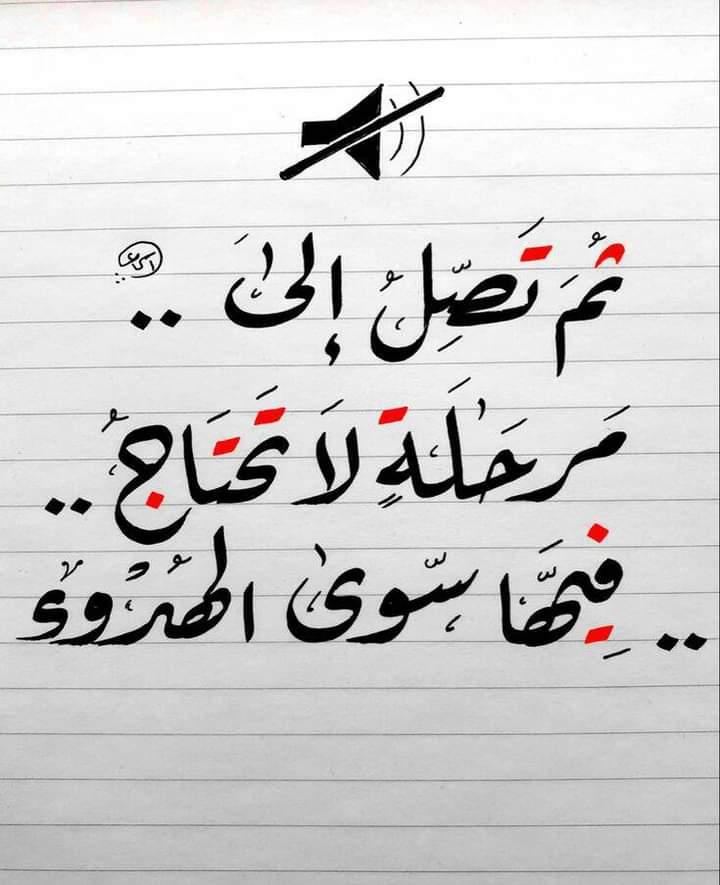 ثُمَ تَصِّلُ إلىٰ ..
مَرحَلَةٍ لَا تَحتَاجُ ..
.. فِيهَّا سّوىٰ الهُدُوء